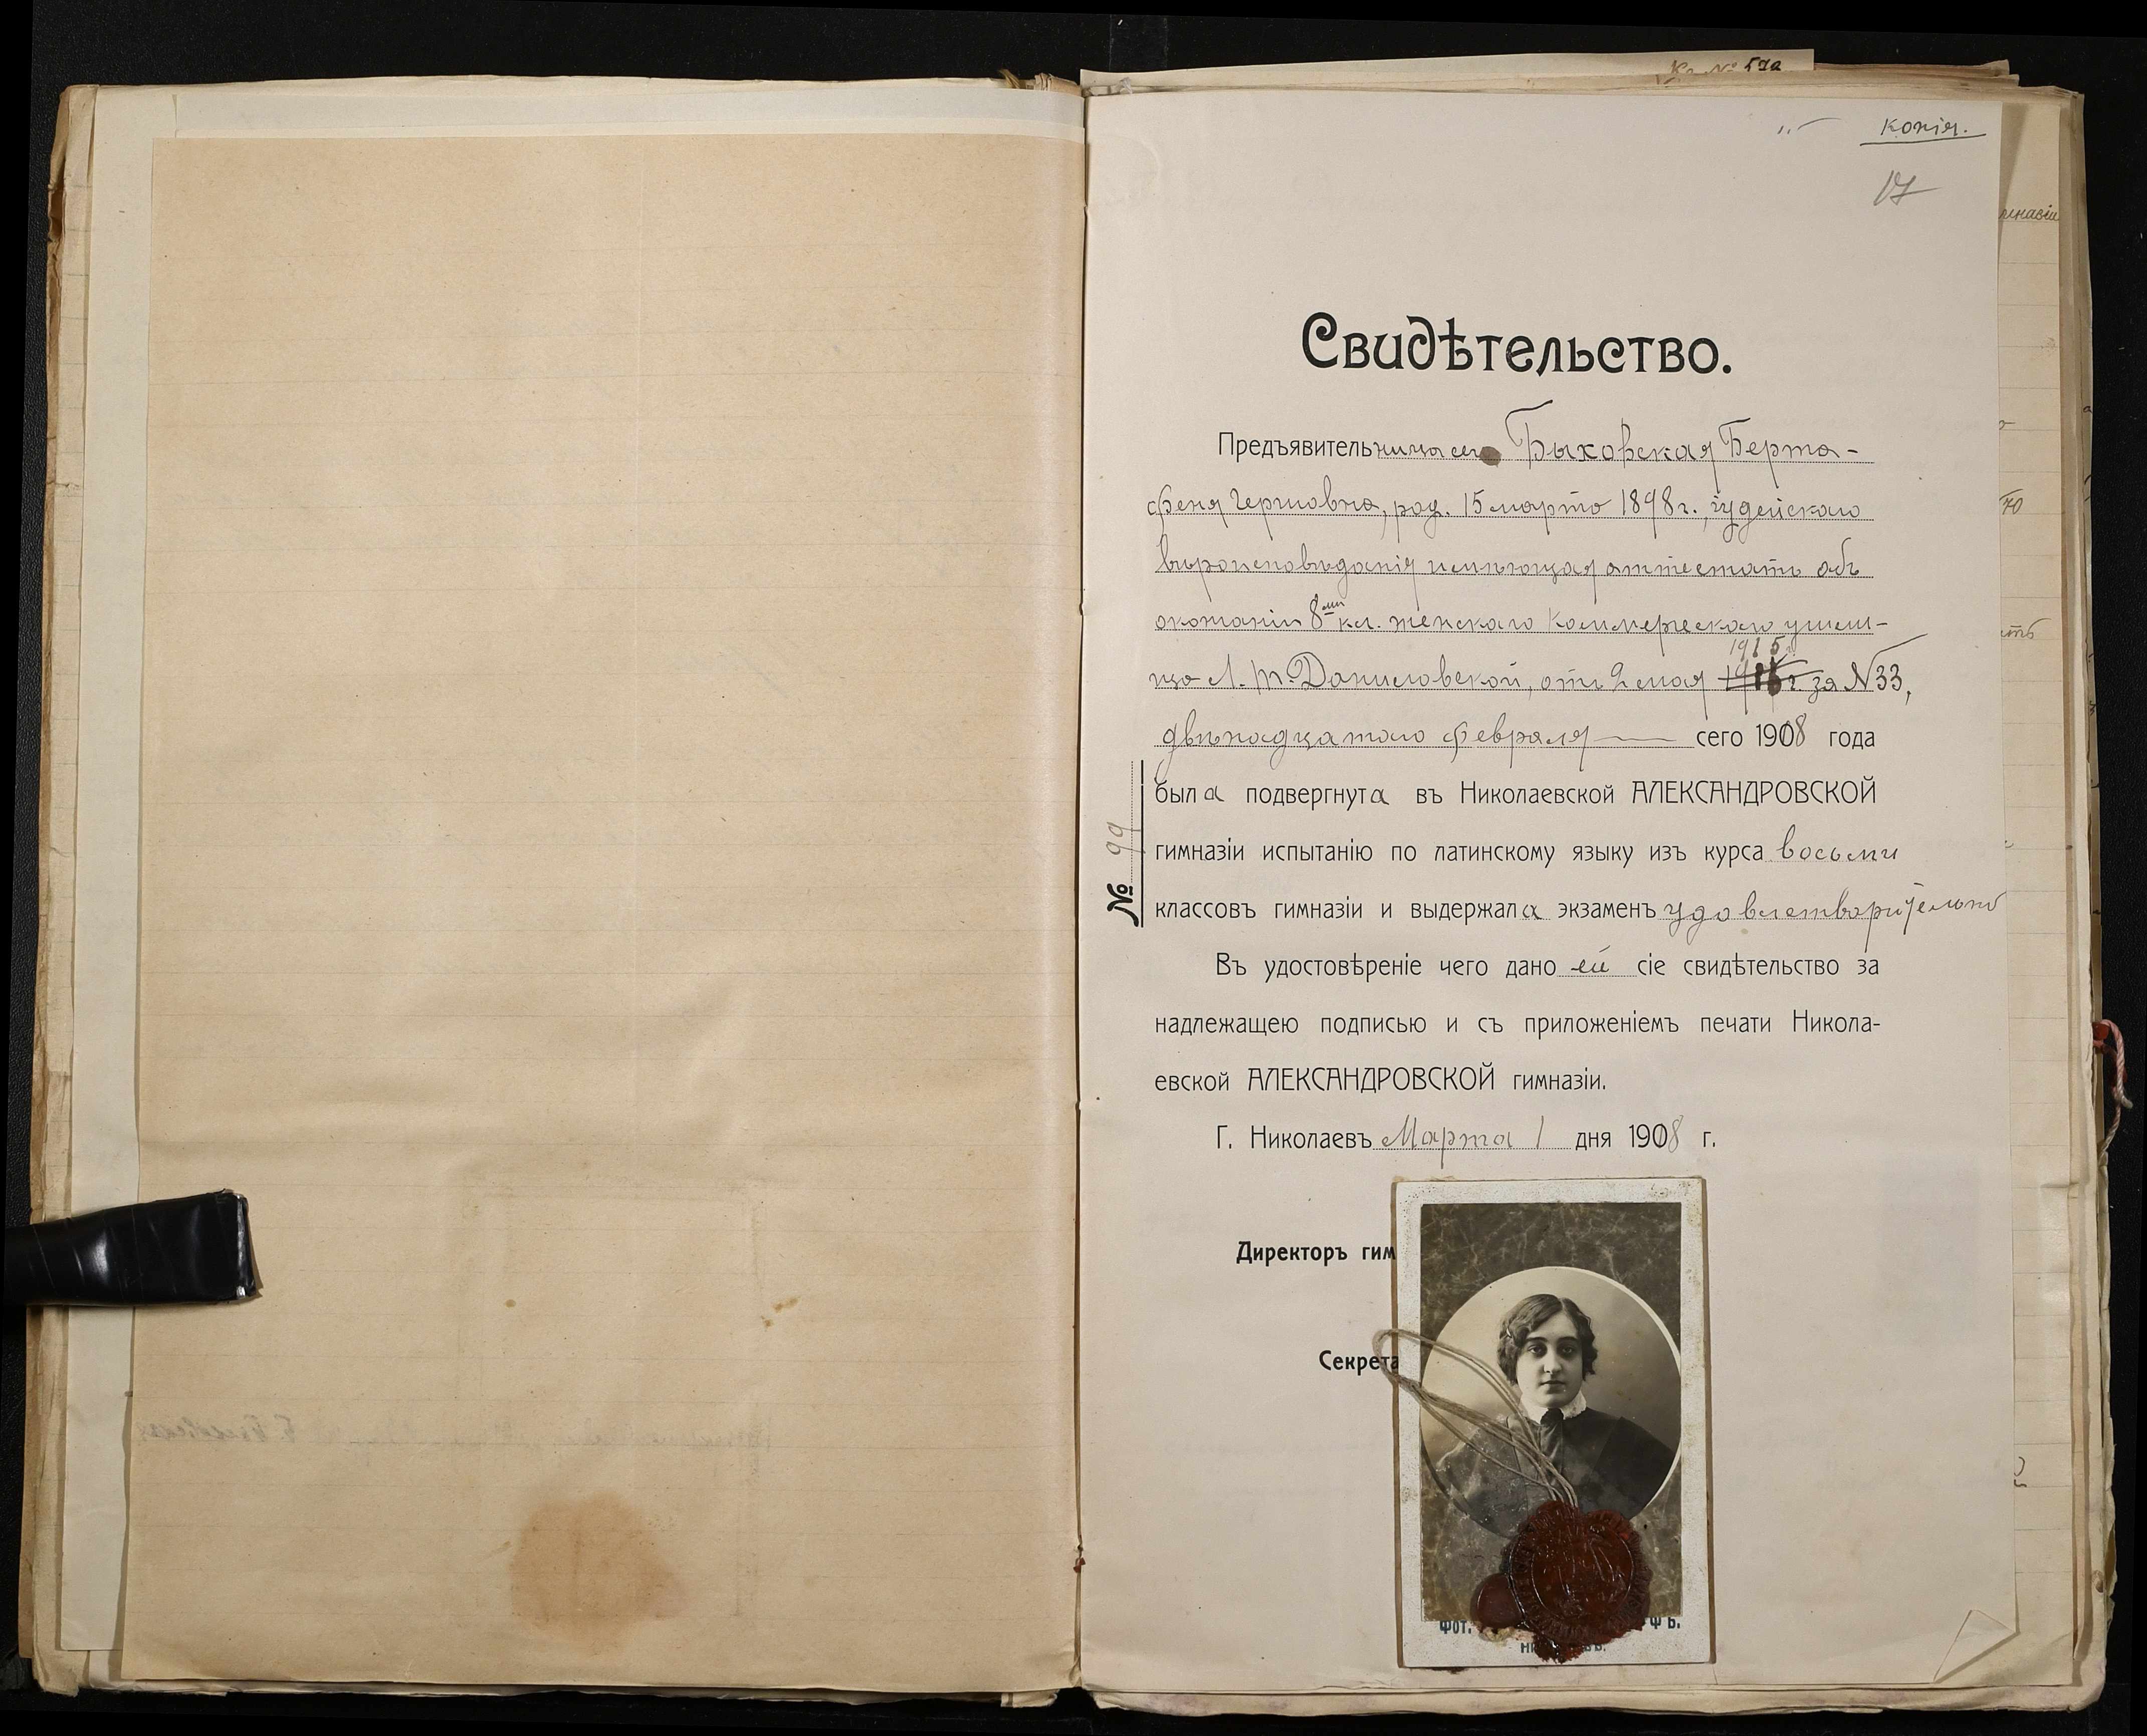 Кг № 592
копія.
17
Свидѣтельство.
Предъявительница сего Быховская Берта-
Феня Гершовна, род. 15 марта 1898 г., іудейскаго
вѣроисповѣданія имѣющая аттестатъ объ
окончаніи 8ми кл. женскаго Коммерческаго учили-
1915
ща Л. Т. Даниловской, отъ 2 мая г. за №33,
двѣнадцатаго февраля сего 1908 года
была подвергнута въ Николаевской АЛЕКСАНДРОВСКОЙ
гимназіи испытанію по латинскому языку изъ курса восьми
классовъ гимназіи и выдержала экзаменъ удовлетворительно
Въ удостовѣреніе чего дано ей сіе свидѣтельство за
надлежащею подписью и съ приложеніемъ печати Никола-
евской АЛЕКСАНДРОВСКОЙ гимназіи.
Г. Николаевъ Марта 1 дня 1908 г.
№ 99
Директоръ гим
Секрета
Фот.